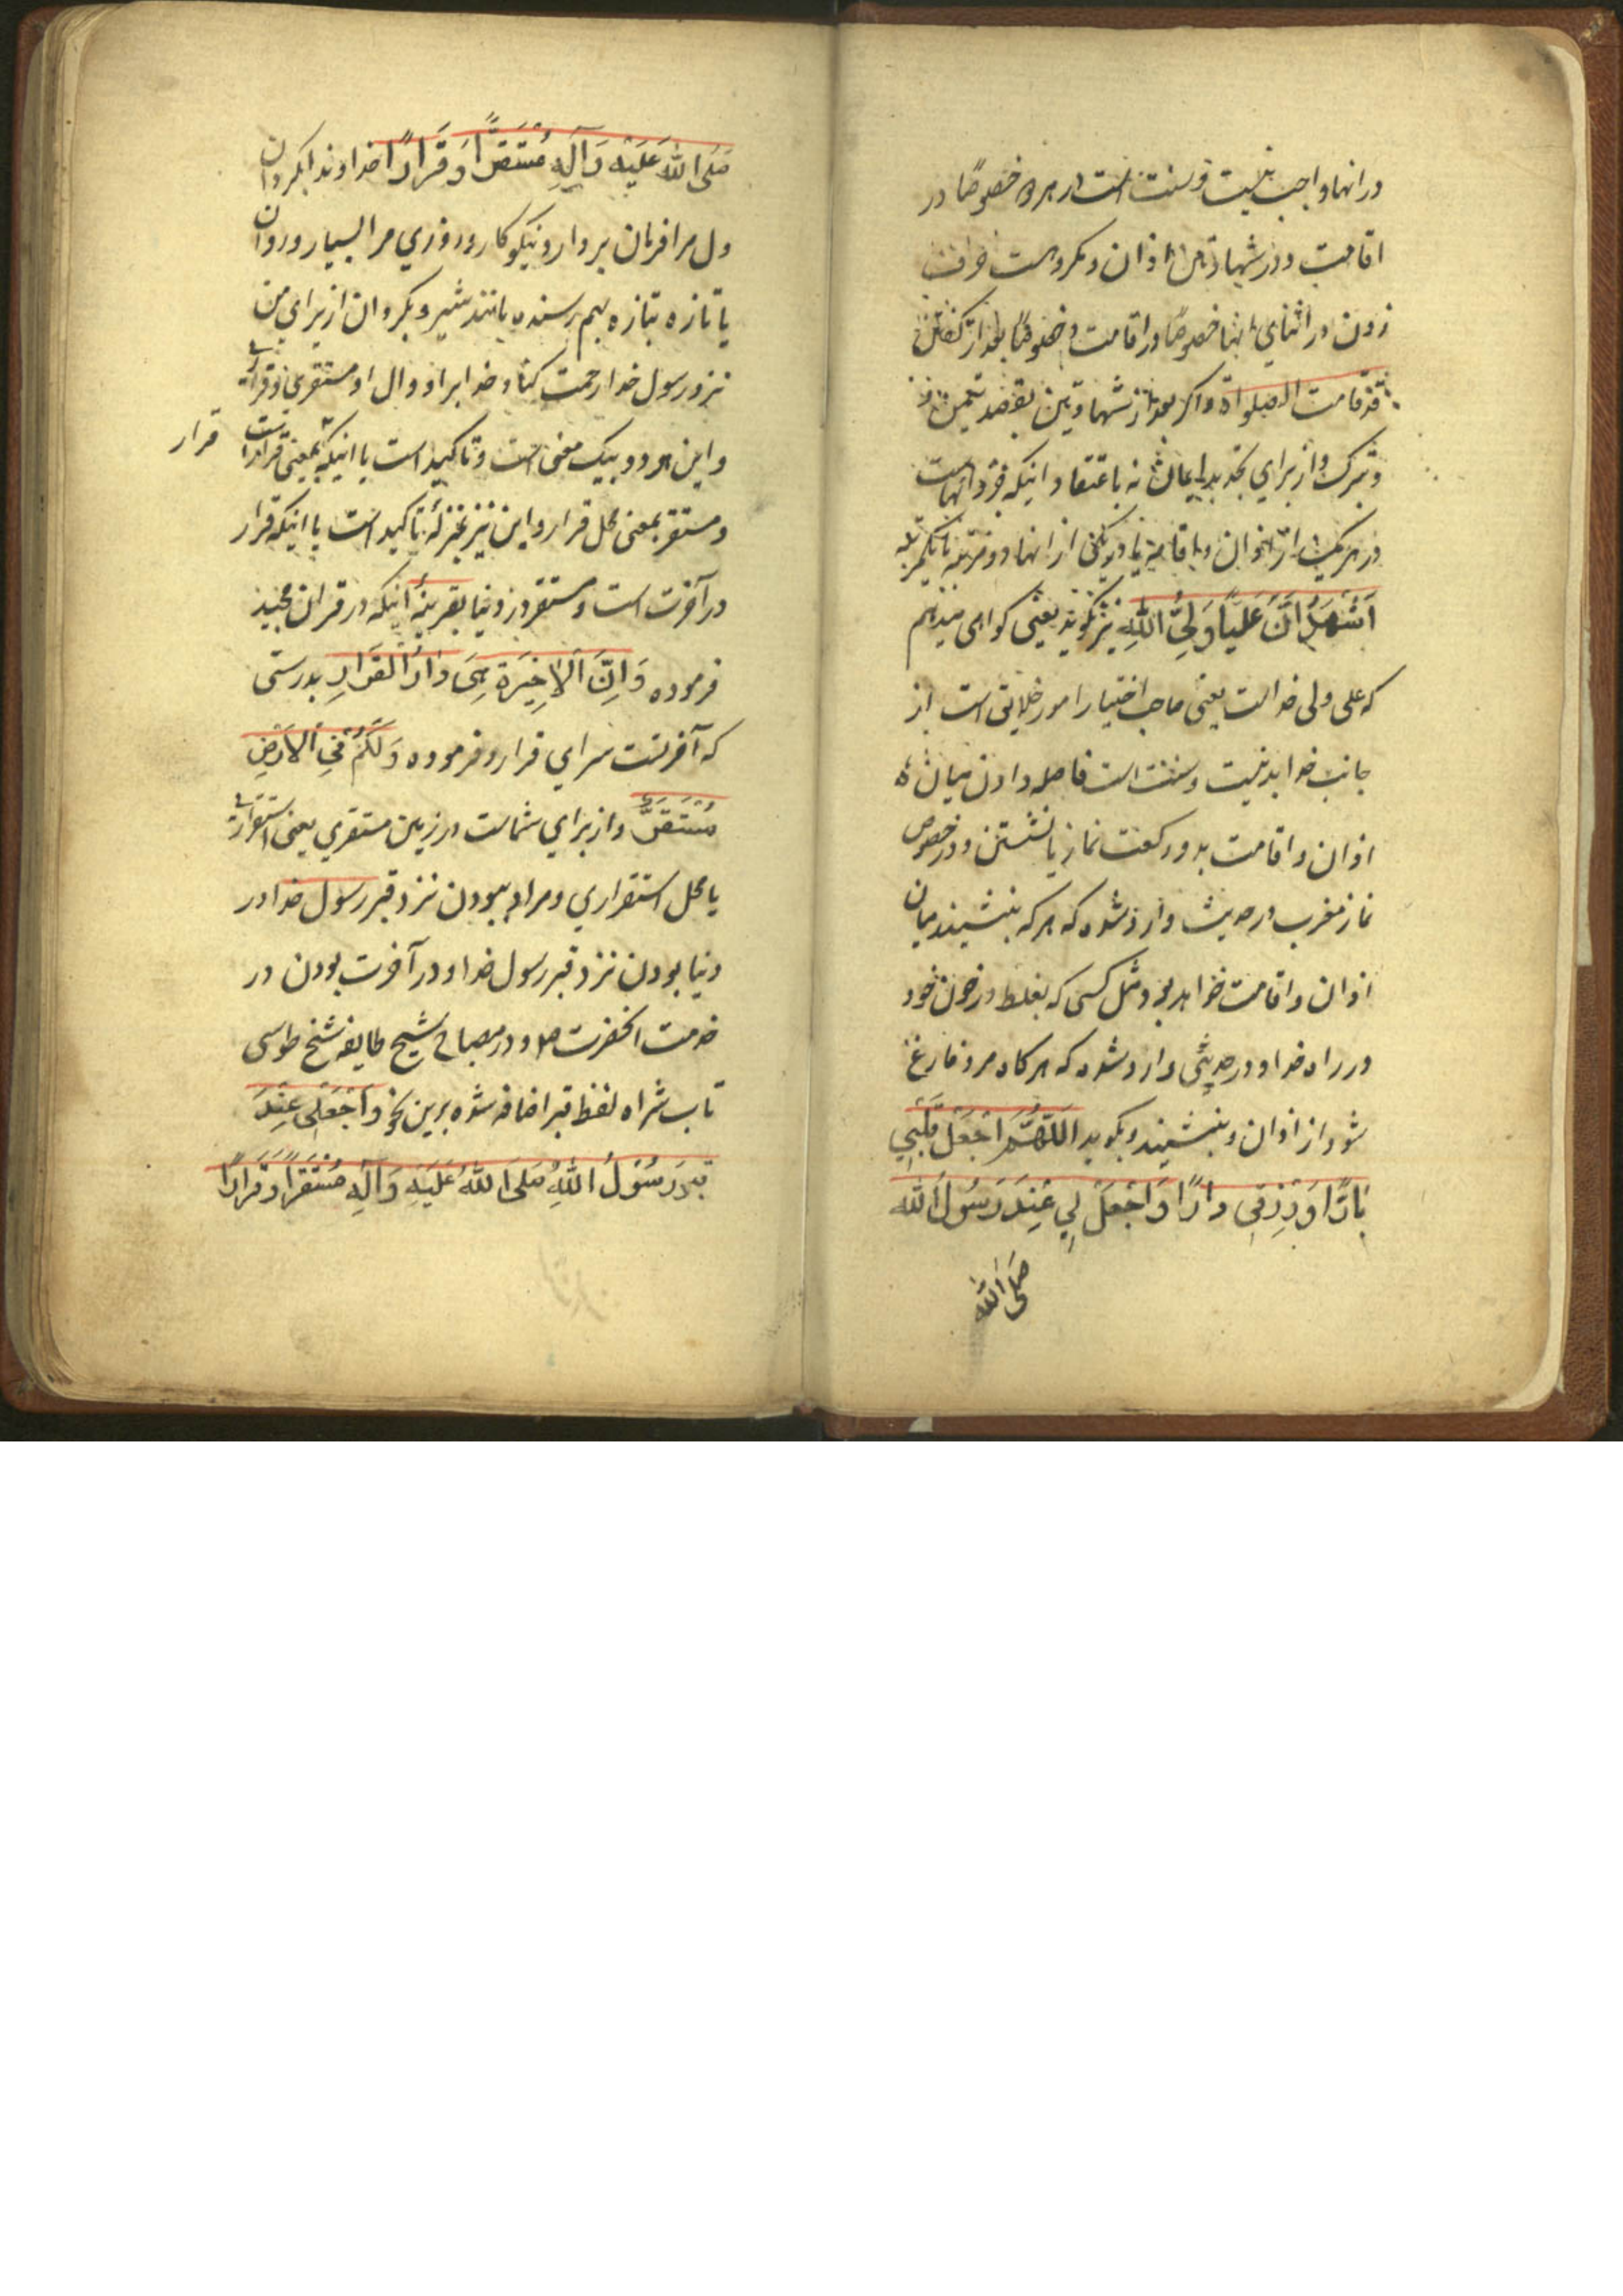 در انها واجب نیست و سنت است در هر دو خصوصًا در
اقامت و در شهادتین اذان و مکروهست حرف
زدن در اثنای اینها خصوصًا در اقامت و خصوصًا بعد از گفتن
قد قامت الصلواة و اکر بعد از شهادتین بقصد تیمن
و تبرک و از برای تجدید ایمان نه باعتقاد اینکه جزو انهاست
در هر یک از اذان و اقامه یا در یکی از انها دو مرتبه یا یکمرتبه
اَشْهَدُ اَنَّ عَلِیًّا وَلِیُّ اللّٰهِ نیز بکوید یعنی کواهی میدهم
که علی ولی خداست یعنی صاحب اختیار امور خلایق است از
جانب خدا بد نیست و سنت است فاصله دادن میان
اذان و اقامت بدو رکعت نماز یا نشستن و در خصوص
نماز مغرب در حدیث وارد شده که هر که بنشیند میان
اذان و اقامت خواهد بود مثل کسی که بغلطد در خون خود
در راه خدا و در حدیثی وارد شده که هر کاه مرد فارغ
شود از اذان و بنشیند و بکوید اَللّٰهُمَّ اجْعَلْ قَلْبِي
بَارًّا وَ رِزْقِي دارًّا وَ اجْعَلْ لِي عِنْدَ رَسُولِ اللّٰه
صَلَّی اللّٰهُ
صَلَّی اللّٰهُ عَلَیْهِ وَ آلِهِ مُسْتَقَرًّا وَ قَرَارًا خداوندا بکردان
دل مرا فرمان بردار و نیکو کار و روزی مرا بسیار و روان
یا تازه بتازه بهم رسنده مانند شیر و بکردان از برای من
نزد رسول خدا رحمت کناد خدا بر او و ال او مستقری و قراری
و این هر دو بیک معنی است و تاکید است یا اینکه بمعنی قرار است
قرار
و مستقر بمعنی محل قرار و این نیز بمنزلهٔ تاکید است یا اینکه قرار
در آخرت است و مستقر در دنیا بقرینهٔ اینکه در قران مجید
فرموده وَ اِنَّ الْاٰخِرَةَ هِيَ دَارُ الْقَرَارِ بدرستی
که آخرتست سرای قرار و فرموده وَ لَکُمْ فِي الْاَرْضِ
مُسْتَقَرٌّ و از برای شماست در زمین مستقری یعنی استقراری
یا محل استقراری و مراد ببودن نزد قبر رسول خدا در
دنیا بودن نزد قبر رسول خدا و در آخرت بودن در
خدمت انحضرت و در مصباح شیخ طایفه شیخ طوسی
طاب ثراه لفظ قبر اضافه شده برین نحو وَ اجْعَلْ لِي عِنْدَ
قَبْرِ رَسُولِ اللّٰهِ صَلَّی اللّٰهُ عَلَیْهِ وَ آلِهِ مُسْتَقَرًّا وَ قَرَارًا